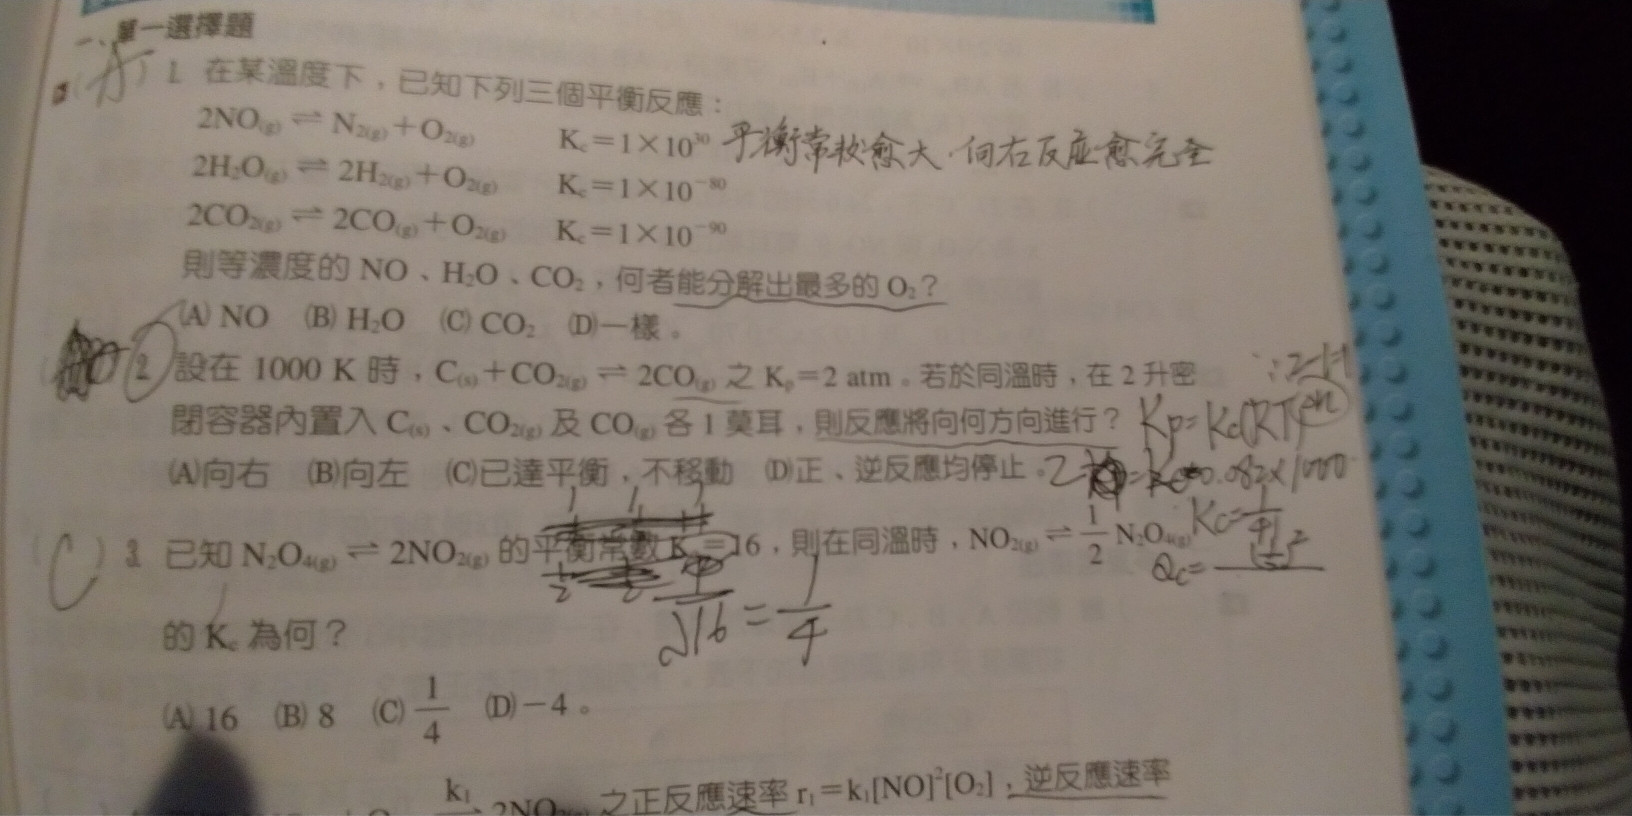 一、單一選擇題
(A) 1. 在某溫度下，已知下列三個平衡反應：
2NO(g) ⇌ N2(g)+O2(g) Kc=1×10^30 平衡常數愈大.向右反應愈完全
2H2O(g) ⇌ 2H2(g)+O2(g) Kc=1×10^-80
2CO2(g) ⇌ 2CO(g)+O2(g) Kc=1×10^-90
則等濃度的 NO、H2O、CO2，何者能分解出最多的 O2？
(A) NO (B) H2O (C) CO2 (D)一樣。
2. 設在 1000 K 時，C(s)+CO2(g) ⇌ 2CO(g) 之 Kp=2 atm。若於同溫時，在 2 升密
∵2-1=1
閉容器內置入 C(s)、CO2(g) 及 CO(g) 各 1 莫耳，則反應將向何方向進行？ Kp=Kc(RT)^Δn
(A)向右 (B)向左 (C)已達平衡，不移動 (D)正、逆反應均停止。 2 = 0.082×1000
1 1 1
(C) 3. 已知 N2O4(g) ⇌ 2NO2(g) 的平衡常數 Kc=16，則在同溫時，NO2(g) ⇌ 1/2 N2O4(g) Kc=1/41
Qc= (1/2)^2
的 Kc 為何？ 1/√16 = 1/4
(A) 16 (B) 8 (C) 1/4 (D)-4。
k1 2NO 之正反應速率 r1=k1[NO]^2[O2]，逆反應速率